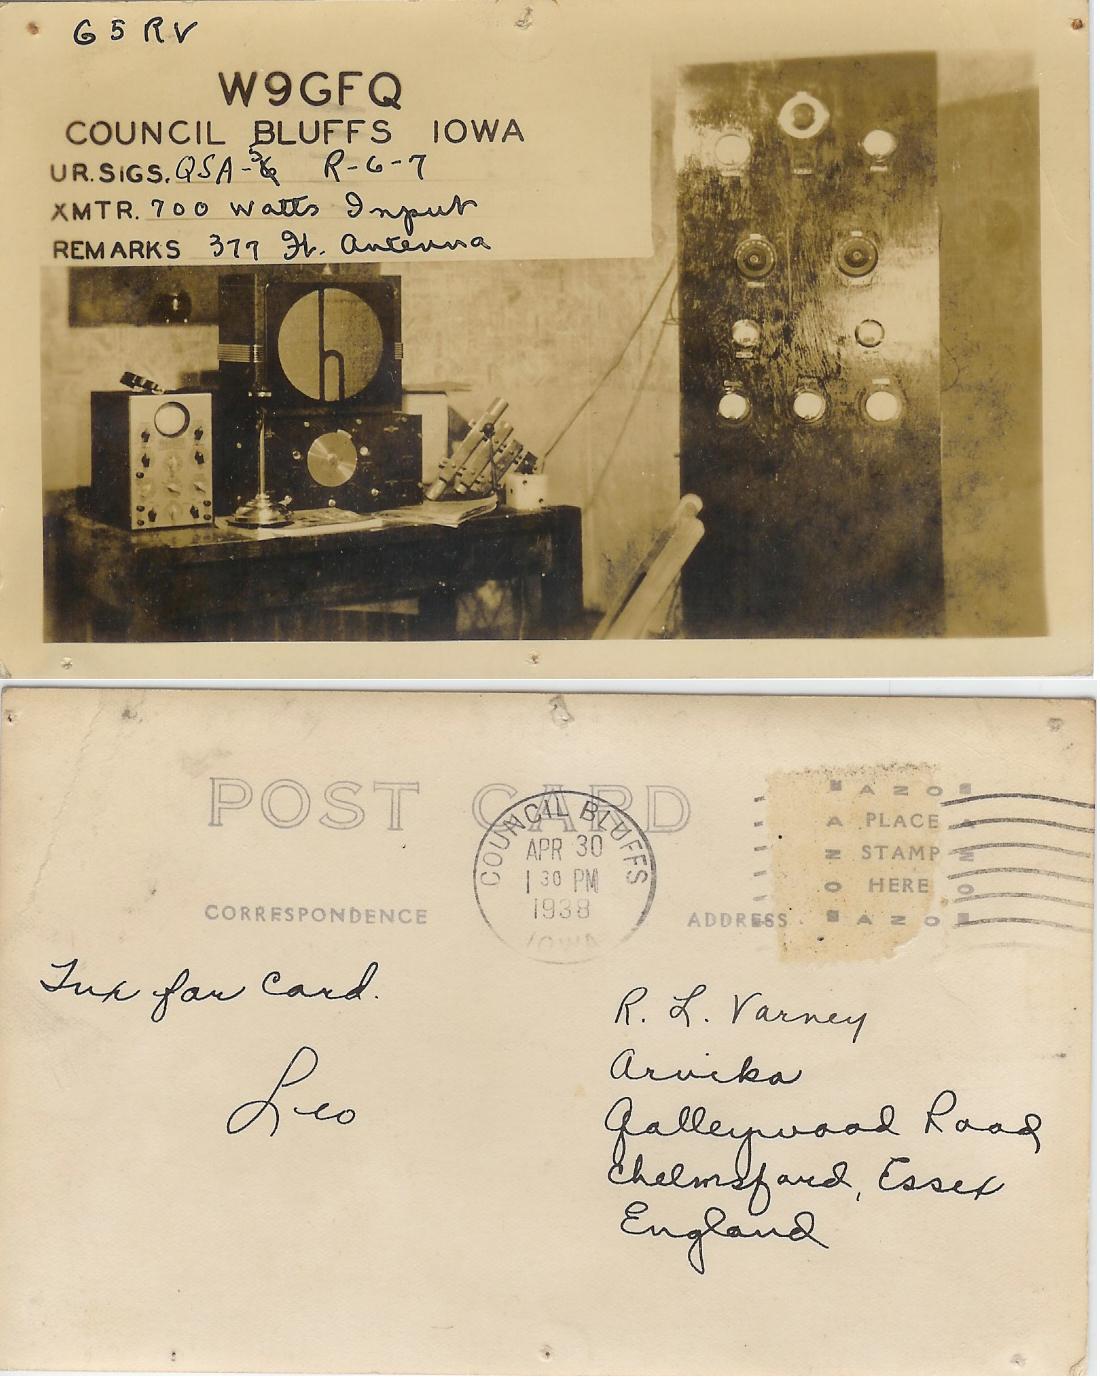 G5RV
W9GFQ
COUNCIL BLUFFS IOWA
UR.SIGS. QSA-5 R-6-7
XMTR. 700 watts Input
REMARKS 377 Ft. Antenna
h
POST CARD
COUNCIL BLUFFS
APR 30
1 30 PM
1938
IOWA
AZO
PLACE
STAMP
HERE
AZO
CORRESPONDENCE
ADDRESS
Tnx for Card.
Leo
R. L. Varney
Arvika
Galleywood Road
Chelmsford, Essex
England